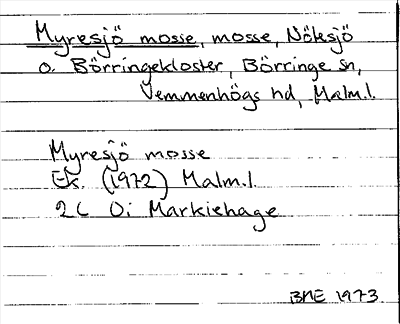 Myresjö mosse, mosse, Nötesjö
o. Börringekloster, Börringe sn,
Vemmenhögs hd, Malm.l.
Myresjö mosse
Ek. (1972) Malm.l.
2C Oi Markiehage
BNE 1973